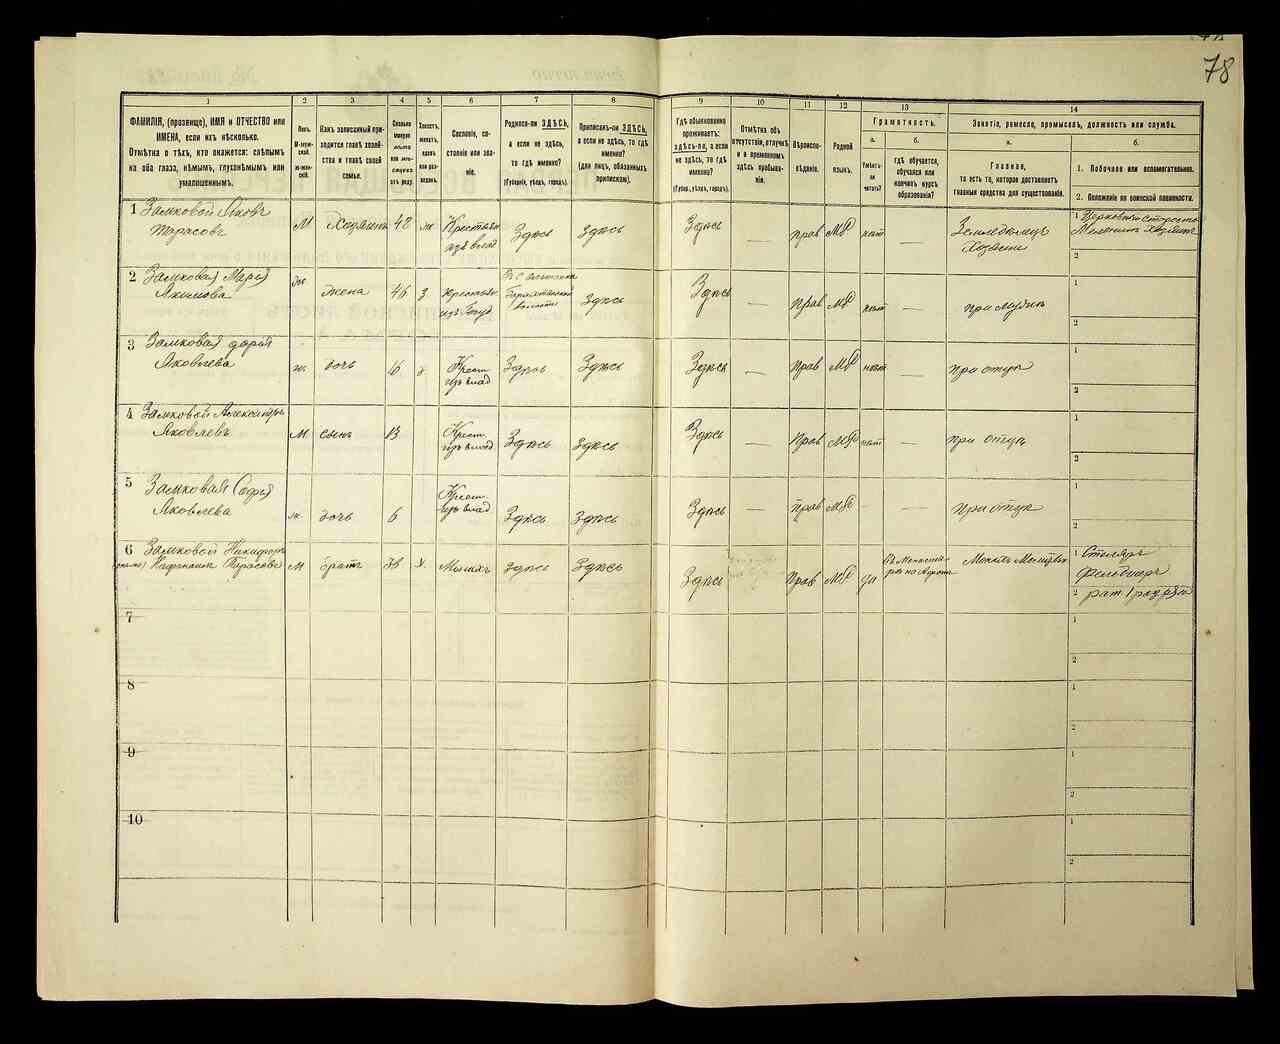 78
1 2 3 4 5 6 7 8 9 10 11 12 13 14
ФАМИЛІЯ, (прозвище), ИМЯ и ОТЧЕСТВО или
ИМЕНА, если ихъ нѣсколько.
Отмѣтка о тѣхъ, кто окажется: слѣпымъ
на оба глаза, нѣмымъ, глухонѣмымъ или
умалишеннымъ.
Полъ.
М-муж-
ской.
Ж-жен-
скій.
Какъ записанный при-
ходится главѣ хозяй-
ства и главѣ своей
семьи.
Сколько
минуло
лѣтъ
или мѣ-
сяцевъ
отъ роду.
Холостъ,
женатъ,
вдовъ
или раз-
веденъ.
Сословіе, со-
стояніе или зва-
ніе.
Родился-ли ЗДѢСЬ,
а если не здѣсь,
то гдѣ именно?
(Губернія, уѣздъ, городъ).
Приписанъ-ли ЗДѢСЬ,
а если не здѣсь, то гдѣ
именно?
(для лицъ, обязанныхъ
припискою).
Гдѣ обыкновенно
проживаетъ:
здѣсь-ли, а если
не здѣсь, то гдѣ
именно?
(Губерн., уѣздъ, городъ).
Отмѣтка объ
отсутствіи, отлучкѣ
и о временномъ
здѣсь пребыва-
ніи.
Вѣроиспо-
вѣданіе.
Родной
языкъ.
Грамотность.
а.
Умѣетъ-
ли
читать?
б.
гдѣ обучается,
обучался или
кончилъ курсъ
образованія?
Занятіе, ремесло, промыселъ, должность или служба.
а.
Главное,
то есть то, которое доставляетъ
главныя средства для существованія.
б.
1. Побочное или вспомогательное.
2. Положеніе по воинской повинности.
1 Замковой Яковъ
Тарасовъ
М Хозяинъ 48 Крестьян
изъ влад Здѣсь Здѣсь Здѣсь — прав Мр нѣт —
Земледѣлец
Хозяин
1 Церковный староста
2
2 Замковая Марья
Якимова
ж жена 46 з Крестьян
волости Здѣсь Здѣсь — Прав Мр нѣт — при мужѣ
2
3 Замковая Дарья
Яковлева
ж. дочь 16 Крест
изъ влад Здѣсь Здѣсь Здѣсь — Прав Мр нѣт — при отцѣ
1
2
4 Замковой Александръ
Яковлевъ
М сынъ 13 Крест.
изъ влад Здѣсь Здѣсь Здѣсь — Прав Мр нѣт — при отцѣ
1
2
5 Замковая Софья
Яковлева
ж. дочь 6 Крест.
изъ влад Здѣсь Здѣсь Здѣсь — прав Мр - — при отцѣ
1
2
6 Замковой Никифоръ
Тарасовъ М братъ 38 х. Монахъ здѣсь Здѣсь Здѣсь Прав Мр да
Въ Монасты-
рѣ на Афонѣ
1 Столяръ
Фельдшеръ
2 рат. 1 разряда
7
1
2
8
1
2
9
1
2
10
1
2